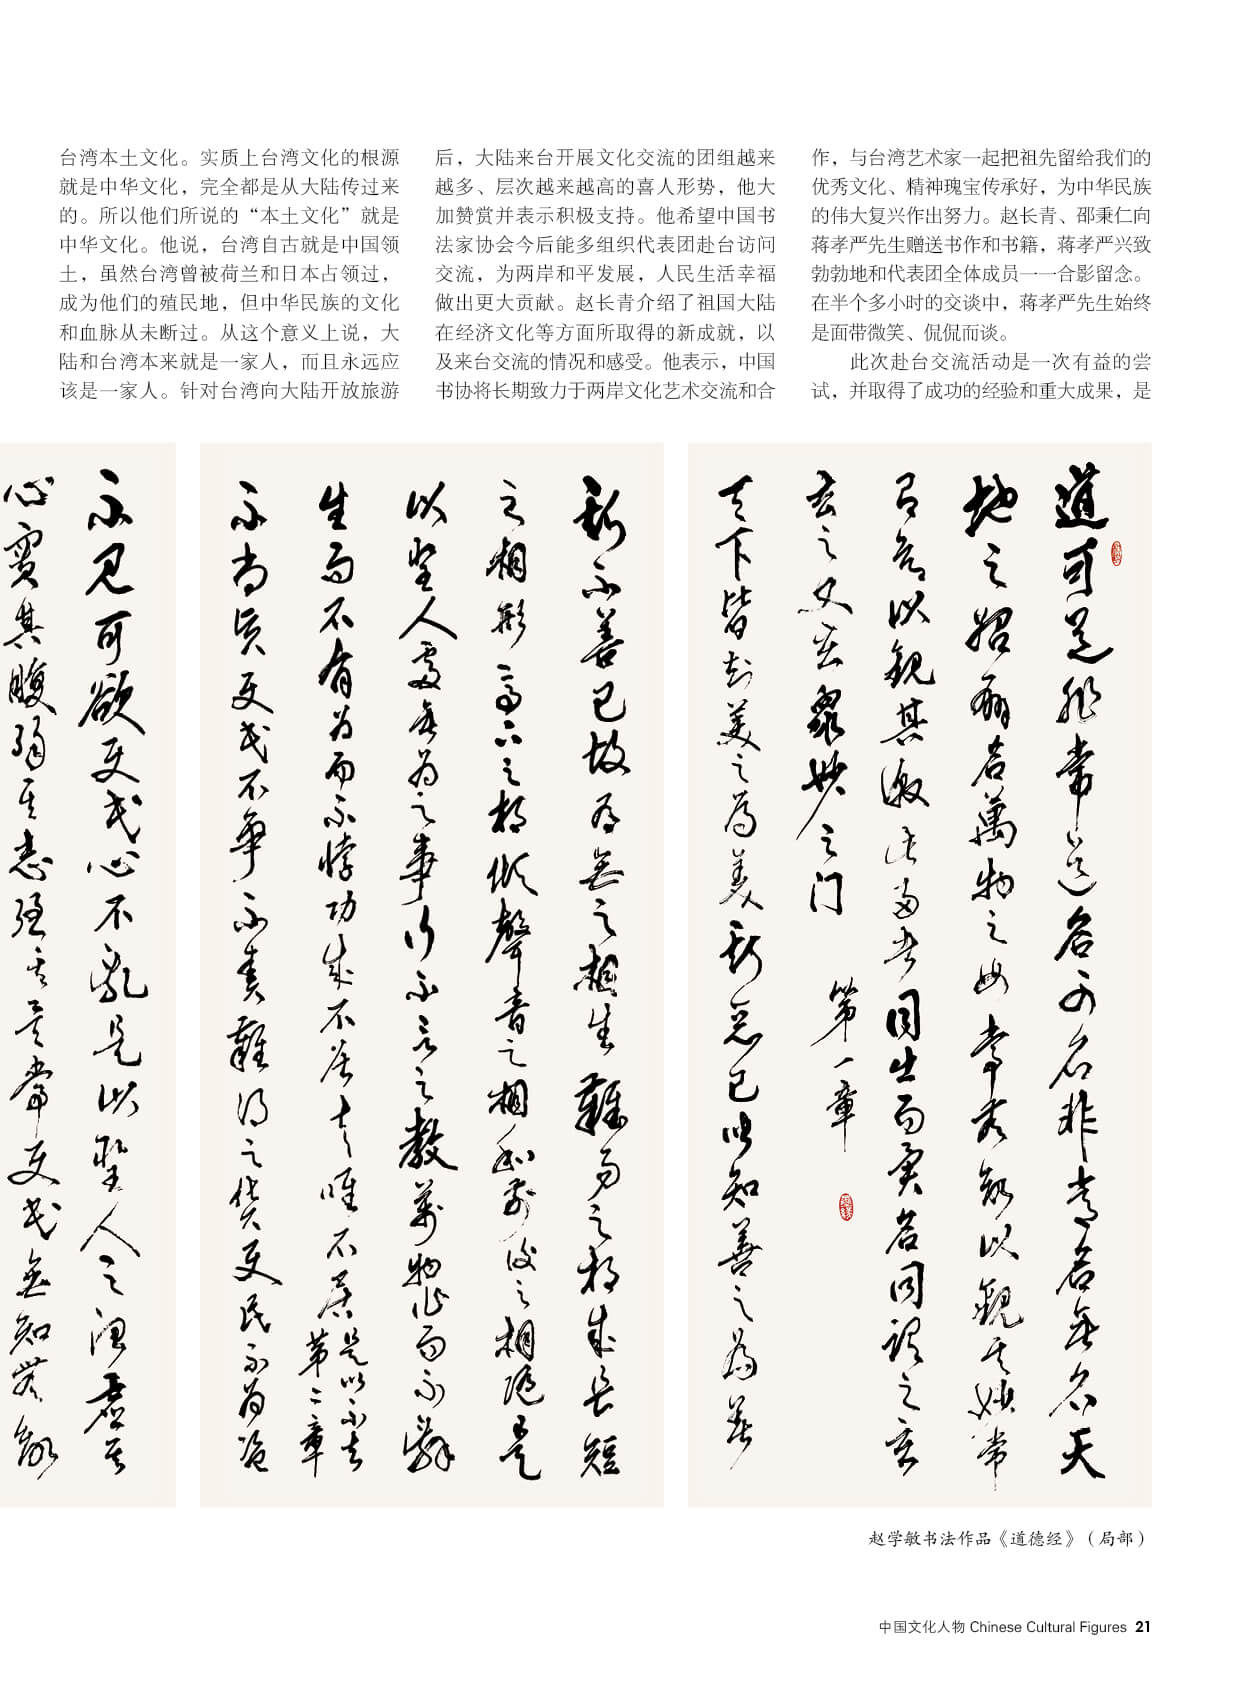 台湾本土文化。实质上台湾文化的根源
就是中华文化，完全都是从大陆传过来
的。所以他们所说的“本土文化”就是
中华文化。他说，台湾自古就是中国领
土，虽然台湾曾被荷兰和日本占领过，
成为他们的殖民地，但中华民族的文化
和血脉从未断过。从这个意义上说，大
陆和台湾本来就是一家人，而且永远应
该是一家人。针对台湾向大陆开放旅游
后，大陆来台开展文化交流的团组越来
越多、层次越来越高的喜人形势，他大
加赞赏并表示积极支持。他希望中国书
法家协会今后能多组织代表团赴台访问
交流，为两岸和平发展，人民生活幸福
做出更大贡献。赵长青介绍了祖国大陆
在经济文化等方面所取得的新成就，以
及来台交流的情况和感受。他表示，中国
书协将长期致力于两岸文化艺术交流和合
作，与台湾艺术家一起把祖先留给我们的
优秀文化、精神瑰宝传承好，为中华民族
的伟大复兴作出努力。赵长青、邵秉仁向
蒋孝严先生赠送书作和书籍，蒋孝严兴致
勃勃地和代表团全体成员一一合影留念。
在半个多小时的交谈中，蒋孝严先生始终
是面带微笑、侃侃而谈。
此次赴台交流活动是一次有益的尝
试，并取得了成功的经验和重大成果，是
道可道非常道名可名非常名无名天
地之始有名萬物之母常无欲以觀其妙常
有欲以觀其徼此两者同出而異名同謂之玄
玄之又玄眾妙之门 第一章
天下皆知美之為美斯惡已皆知善之為善
斯不善已故有無之相生難易之相成長短
之相形高下之相傾聲音之相和前後之相隨是
以聖人處無為之事行不言之教萬物作而不辭
生而不有为而不恃功成不居夫唯不居是以不去
第二章
不尚賢使民不争不貴難得之货使民不为盗
不見可欲使民心不亂是以聖人之治虛其
心實其腹弱其志强其骨常使民無知無欲
赵学敏书法作品《道德经》（局部）
中国文化人物 Chinese Cultural Figures 21